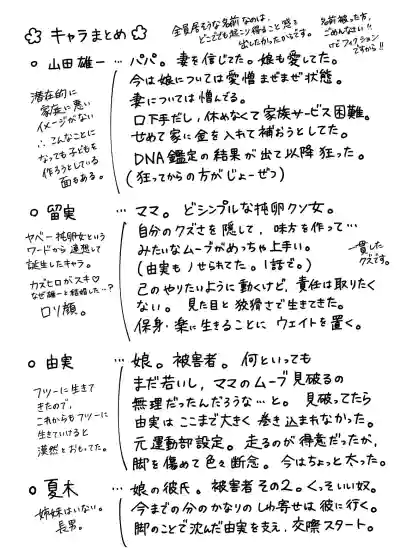 キャラまとめ
全員居そうな名前なのは、
どこでも起こり得ること感を
出したかったからです。
名前被った方、
ごめんなさい!!
けどフィクション
ですから!!
○ 山田雄一 … パパ。妻を信じてた。娘も愛してた。
今は娘については愛憎まぜまぜ状態。
妻については憎んでる。
口下手だし、休めなくて家族サービス困難。
せめて家に金を入れて補おうとしてた。
DNA鑑定の結果が出て以降狂った。
(狂ってからの方がじょーぜつ)
潜在的に
家庭に悪い
イメージがない
∴こんなことに
なっても子どもを
作ろうとしている
面もある。
○ 留実 … ママ。どシンプルな托卵クソ女。
自分のクズさを隠して、味方を作って…
みたいなムーブがめっちゃ上手い。
(由実もノせられてた。1話で。)
一貫した
クズです。
このやりたいように動くけど、責任は取りたく
ない。見た目と狡猾さで生きてきた。
保身・楽に生きることにウェイトを置く。
ヤベー托卵女という
ワードから連想して
誕生したキャラ。
カズヒロがスキ♡
なぜ雄一と結婚した…?
ロリ顔。
○ 由実 … 娘。被害者。何といっても
まだ若いし、ママのムーブ見破るの
無理だったんだろうな…と。見破ってたら
由実はここまで大きく巻き込まれなかった。
元運動部設定。走るのが得意だったが、
脚を傷めて色々断念。今はちょっと太った。
フツーに生きて
きたので、
これからもフツーに
生きていけると
漠然とおもってた。
○ 夏木 … 娘の彼氏。被害者その2。くっそいい奴。
今までの分のかなりのしわ寄せは彼に行く。
脚のことで沈んだ由実を支え、交際スタート。
姉妹はいない。
長男。